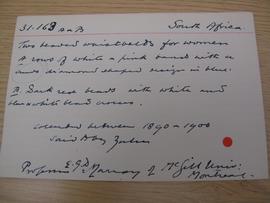 31.163 A & B South Africa.
Two beaded waistbelts for women
A rows of white & pink banded with a
diamond shaped design in blue.
B Dark red beads with white and
blue & white bead crosses.
collected between 1890 - 1900
Said to be Zulu
Professor E.G.D. Murray of McGill Univ:
Montreal.